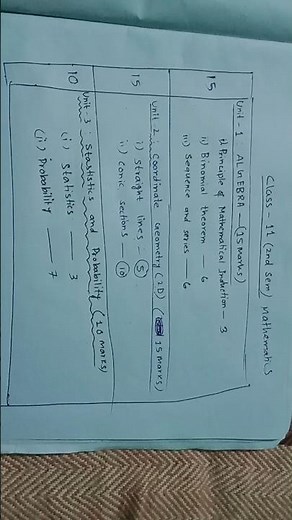 Class - 11 (2nd Sem) Mathematics
15
Unit - 1 ALGEBRA (15 Marks)
i) Principle of Mathematical Induction - 3
ii) Binomial theorem - 6
iii) Sequence and series - 6
15
Unit - 2 : Coordinate Geometry (2D) (15 Marks)
i) Straight lines - 5
ii) Conic sections - 10
10
Unit - 3 : Stastistics and Probability (10 marks)
(i) Statistics - 3
(ii) Probability - 7